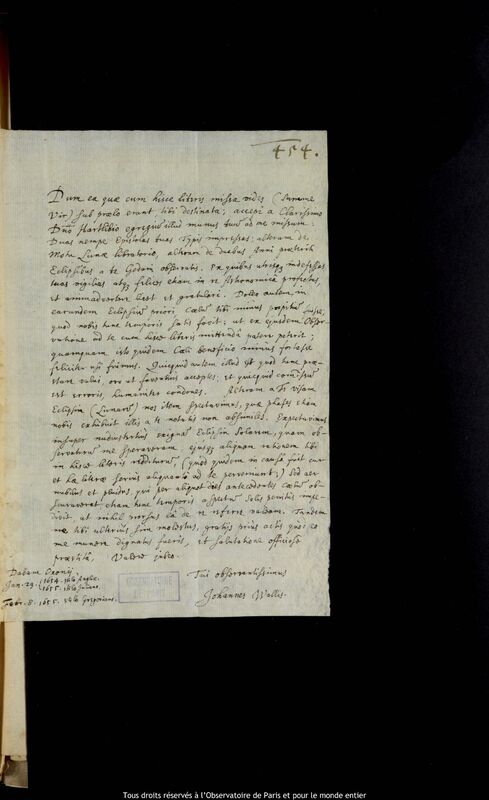 454.
Dum ea quæ cum hisce literis missa vides (Summe
Vir) sub prælo erant tibi destinata; accepi a Clarissimo
Dno Hartlibio egregium illud munus tuum ad me missum;
Duas nempe Epistolas tuas Typis impressas; alteram de
Motu Lunæ libratorio, alteram de duabus Anni præteriti
Eclipsibus a te Gedani observatis. Ex quibus utrisque indefessas
tuas vigilias atque felices etiam in re Astronomica profectus,
et animadvertere licet et gratulari. Doleo autem in
earundem Eclipsium priori Cœlum tibi minus propitium fuisse,
quod nobis hunc temporis satis fovit; ut ex ejusdem Obser-
vatione ad te cum hisce literis mittenda patere poterit;
quamquam isto quidem Cœli beneficio minus fortasse
feliciter usi fuimus. Quicquid autem illud est quod hunc præ-
stare valui, oro ut faventius acceptes; et quicquid commissum
est erroris, humaniter condones. Alteram a Te visam
Eclipsin (Lunarem) nos item spectavimus, quæ phases etiam
nobis exhibuit illis a te notatis non absimiles. Expectavimus
insuper nudiustertius exiguam Eclipsin Solarem, quam ob-
servaturum me speraveram, ejusque aliquam rationem tibi
in hisce literis redditurum, (quod quidem in causa fuit cur
et hæ literæ serius aliquanto ad te perveniunt;) Sed aer
nubilus et pluvius qui per aliquot dies antecedentes Cœlum ob-
scuraverat, etiam hunc temporis aspectum Solis penitus impe-
divit, ut nihil prorsus ea de re referre valeam. Tandem
ne tibi ulterius sim molestus, gratiis prius actis quod eo
me munere dignatus fueris, et salutatione officiose
præstita, Valere jubeo.
Dabam Oxonij.
Jan. 29. 1654. stilo Angliæ.
1655. stilo Juliano.
Febr. 8. 1655. stilo Gregoriano.
OBSERVATOIRE
DE PARIS
Tui observantissimus
Johannes Wallis.
Tous droits réservés à l'Observatoire de Paris et pour le monde entier